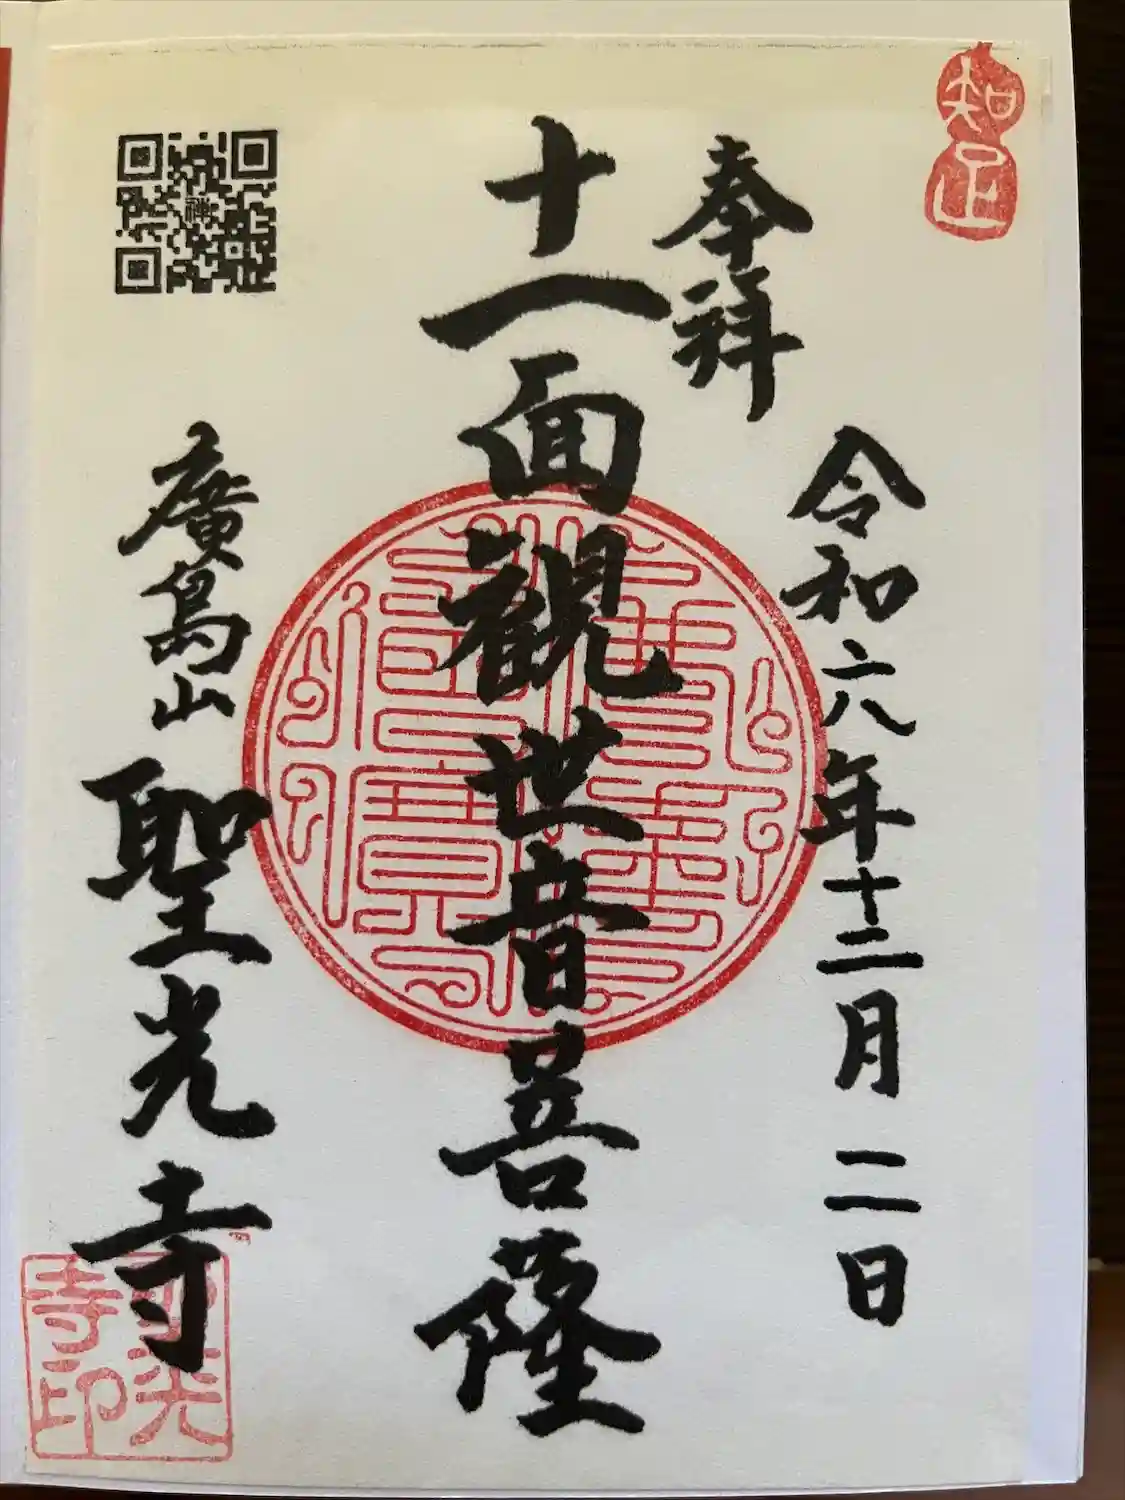 知足
奉拝
令和六年十二月二日
十一面観世音菩薩
廣島山
聖光寺
聖光寺印